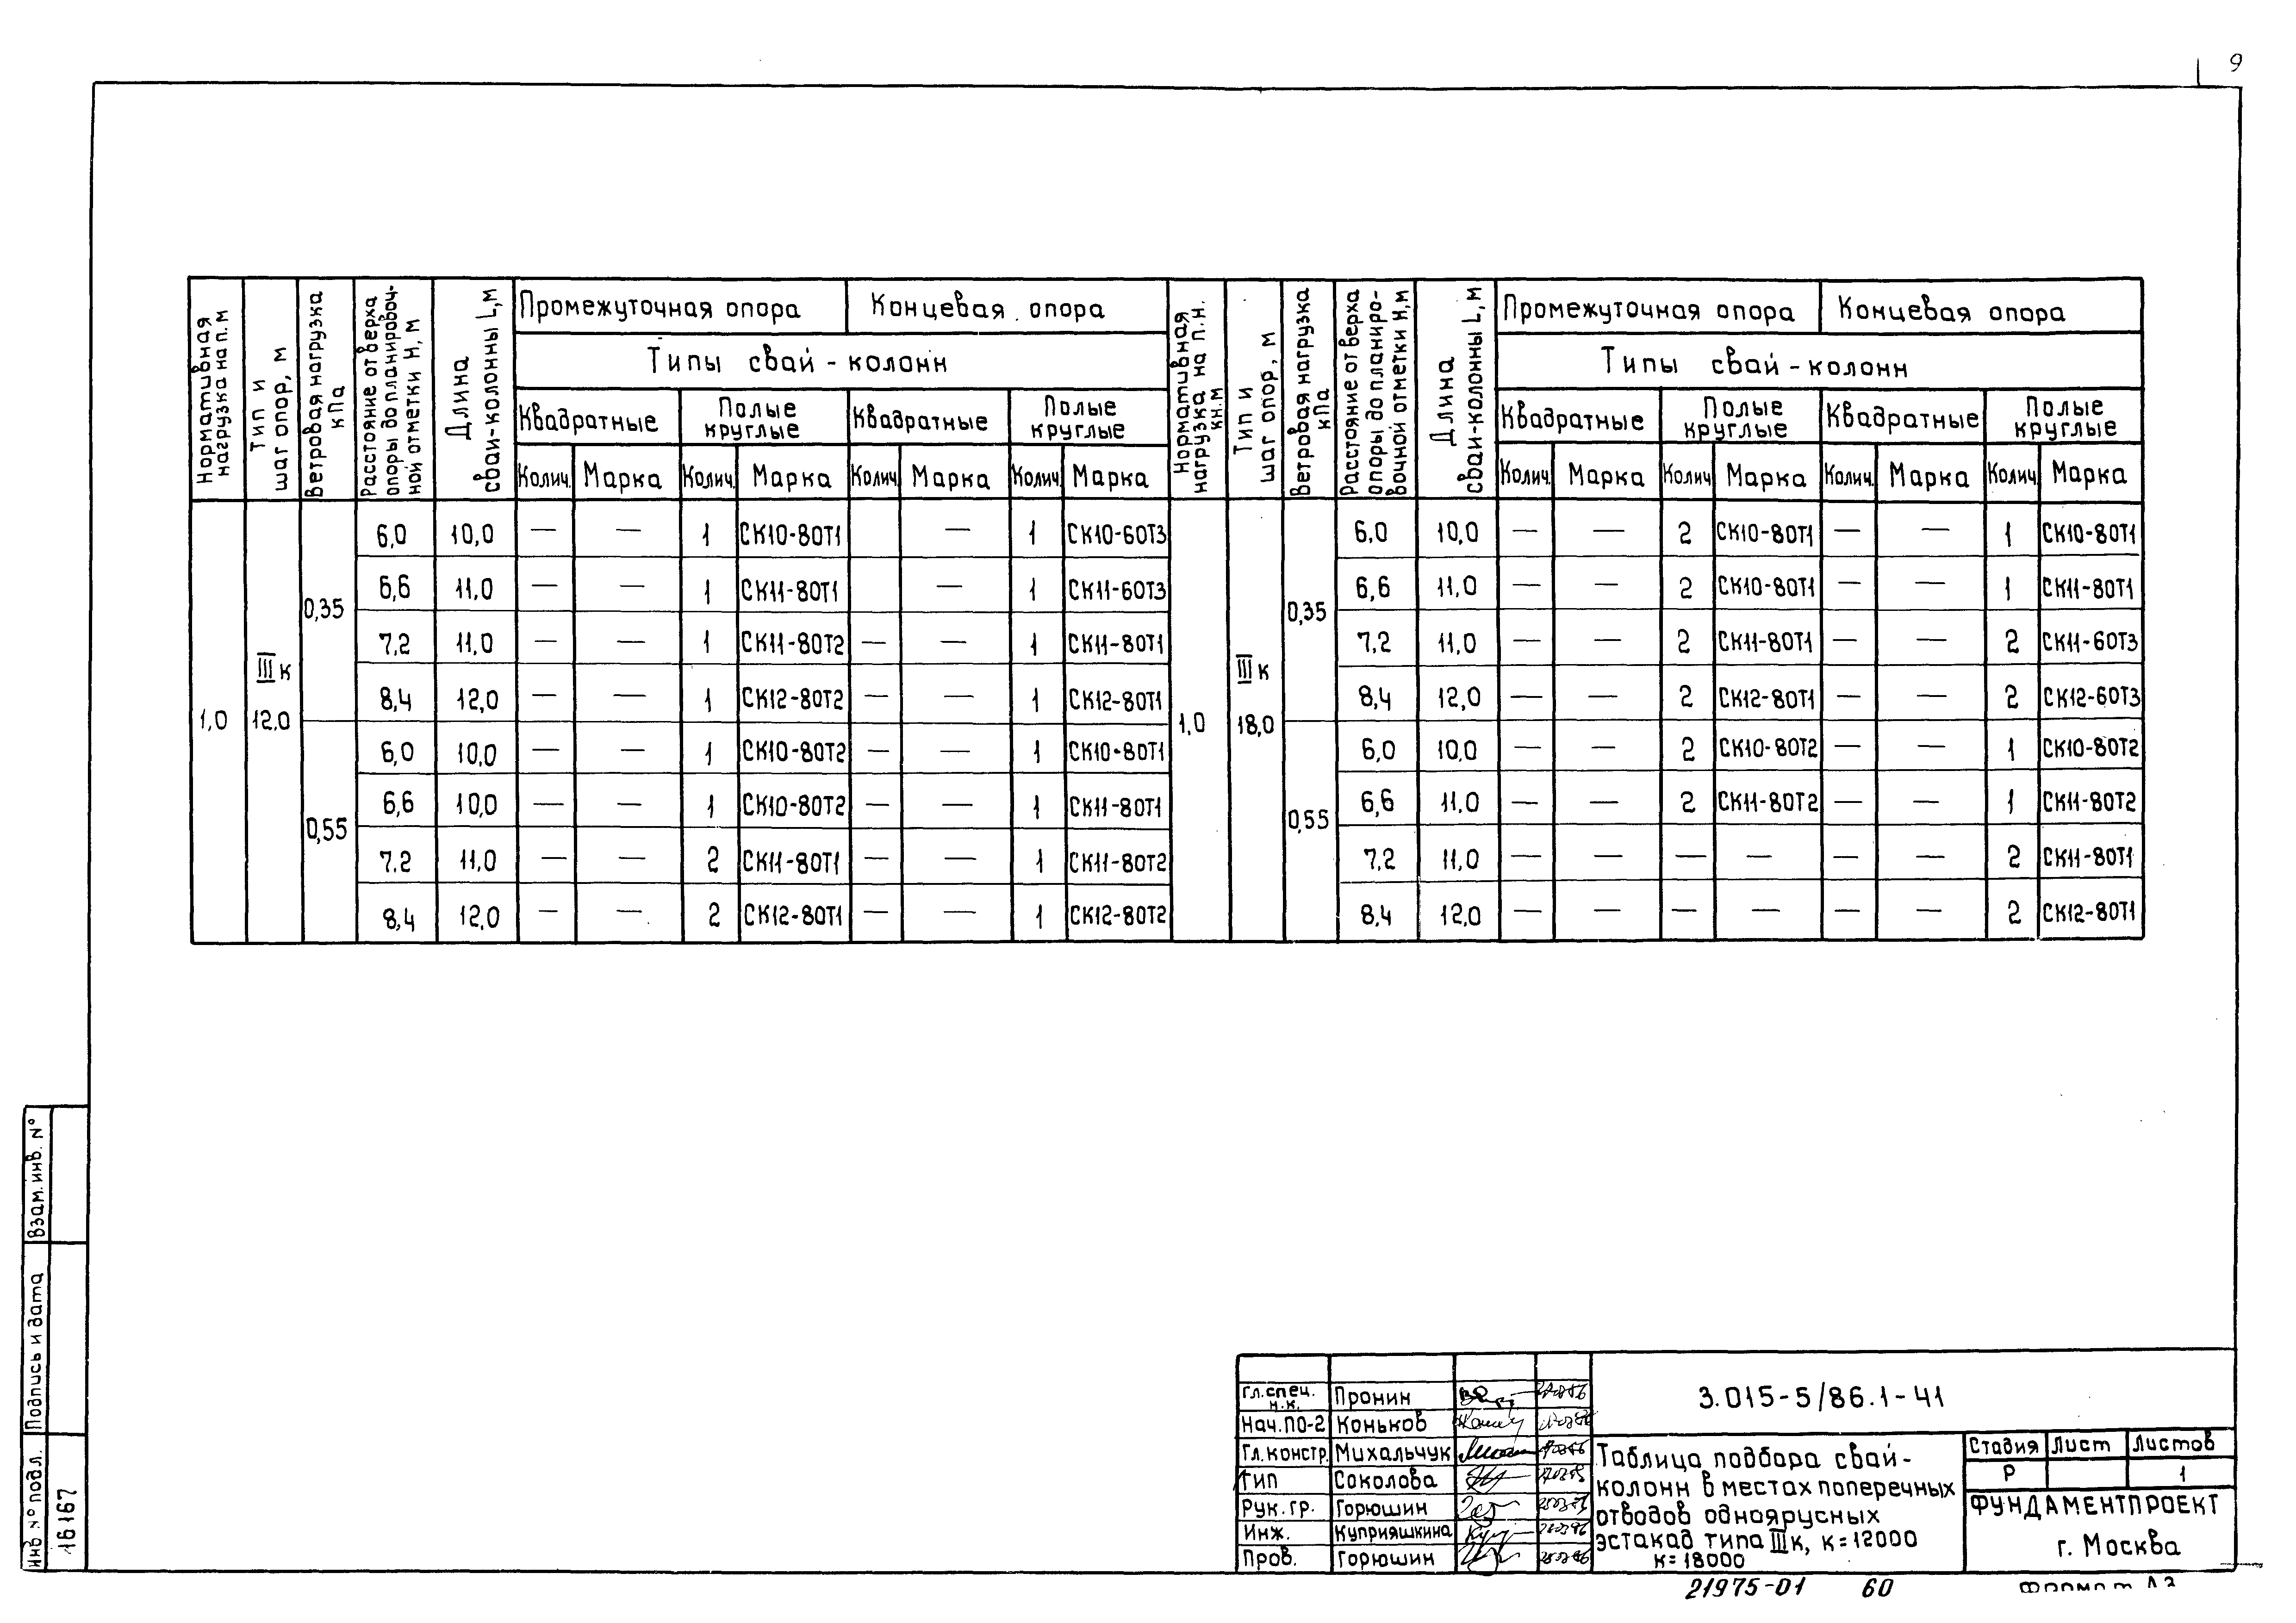 9
Нормативная нагрузка на п.м
Тип и шаг опор, м
Ветровая нагрузка кПа
Расстояние от верха опоры до планировочной отметки Н, м
Длина сваи-колонны L,м
Промежуточная опора | Концевая опора
Типы свай-колонн
Квадратные | Полые круглые | Квадратные | Полые круглые
Колич. | Марка | Колич. | Марка | Колич. | Марка | Колич. | Марка
Нормативная нагрузка на п.н. кн.м
Тип и шаг опор, м
Ветровая нагрузка кПа
Расстояние от верха опоры до планировочной отметки Н,м
Длина сваи-колонны L, м
Промежуточная опора | Концевая опора
Типы свай-колонн
Квадратные | Полые круглые | Квадратные | Полые круглые
Колич. | Марка | Колич | Марка | Колич. | Марка | Колич. | Марка
1,0 | IIIк 12,0
0,35
6,0 | 10,0 | — | — | 1 | СК10-80Т1 | | — | 1 | СК10-60Т3
6,6 | 11,0 | — | — | 1 | СК11-80Т1 | | — | 1 | СК11-60Т3
7,2 | 11,0 | — | — | 1 | СК11-80Т2 | — | — | 1 | СК11-80Т1
8,4 | 12,0 | — | — | 1 | СК12-80Т2 | — | — | 1 | СК12-80Т1
0,55
6,0 | 10,0 | — | — | 1 | СК10-80Т2 | — | — | 1 | СК10-80Т1
6,6 | 10,0 | — | — | 1 | СК10-80Т2 | — | — | 1 | СК11-80Т1
7.2 | 11,0 | — | — | 2 | СК11-80Т1 | — | — | 1 | СК11-80Т2
8,4 | 12,0 | — | — | 2 | СК12-80Т1 | — | — | 1 | СК12-80Т2
1,0 | IIIк 18,0
0,35
6,0 | 10,0 | — | — | 2 | СК10-80Т1 | — | — | 1 | СК10-80Т1
6,6 | 11,0 | — | — | 2 | СК10-80Т1 | — | — | 1 | СК11-80Т1
7,2 | 11,0 | — | — | 2 | СК11-80Т1 | — | — | 2 | СК11-60Т3
8,4 | 12,0 | — | — | 2 | СК12-80Т1 | — | — | 2 | СК12-60Т3
0,55
6,0 | 10,0 | — | — | 2 | СК10-80Т2 | — | — | 1 | СК10-80Т2
6,6 | 11,0 | — | — | 2 | СК11-80Т2 | — | — | 1 | СК11-80Т2
7,2 | 11,0 | — | — | — | — | — | — | 2 | СК11-80Т1
8,4 | 12,0 | — | — | — | — | — | — | 2 | СК12-80Т1
Взам. инв. №
Подпись и дата
Инв № подл.
16167
Гл. спец. н.к. Пронин
Нач. ПО-2 Коньков
Гл. констр. Михальчук
Гип Соколова
Рук. гр. Горюшин
Инж. Куприяшкина
Пров. Горюшин
3.015-5/86.1-41
Таблица подбора свай-
колонн в местах поперечных
отводов одноярусных
эстакад типа IIIк, к=12000
к=18000
Стадия | Лист | Листов
Р | | 1
ФУНДАМЕНТПРОЕКТ
г. Москва
21975-01 60
Формат А3